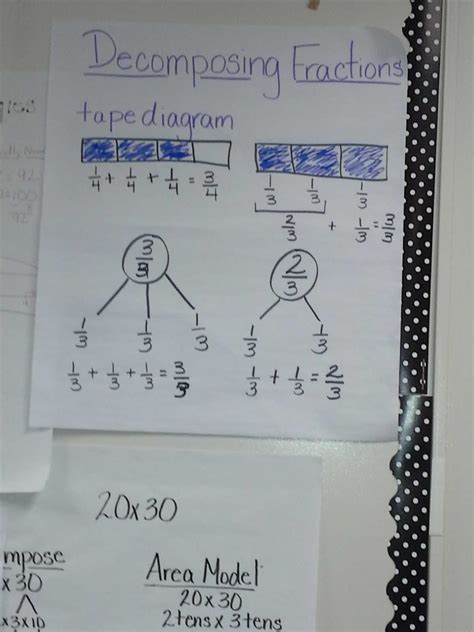 Decomposing Fractions
tape diagram
1/4 + 1/4 + 1/4 = 3/4
1/3 1/3 1/3
2/3 + 1/3 = 3/3
3/3
1/3 1/3 1/3
1/3 + 1/3 + 1/3 = 3/3
2/3
1/3 1/3
1/3 + 1/3 = 2/3
20x30
mpose
x 30
x3x10
Area Model
20 x 30
2 tens x 3 tens
= 92
=100
92